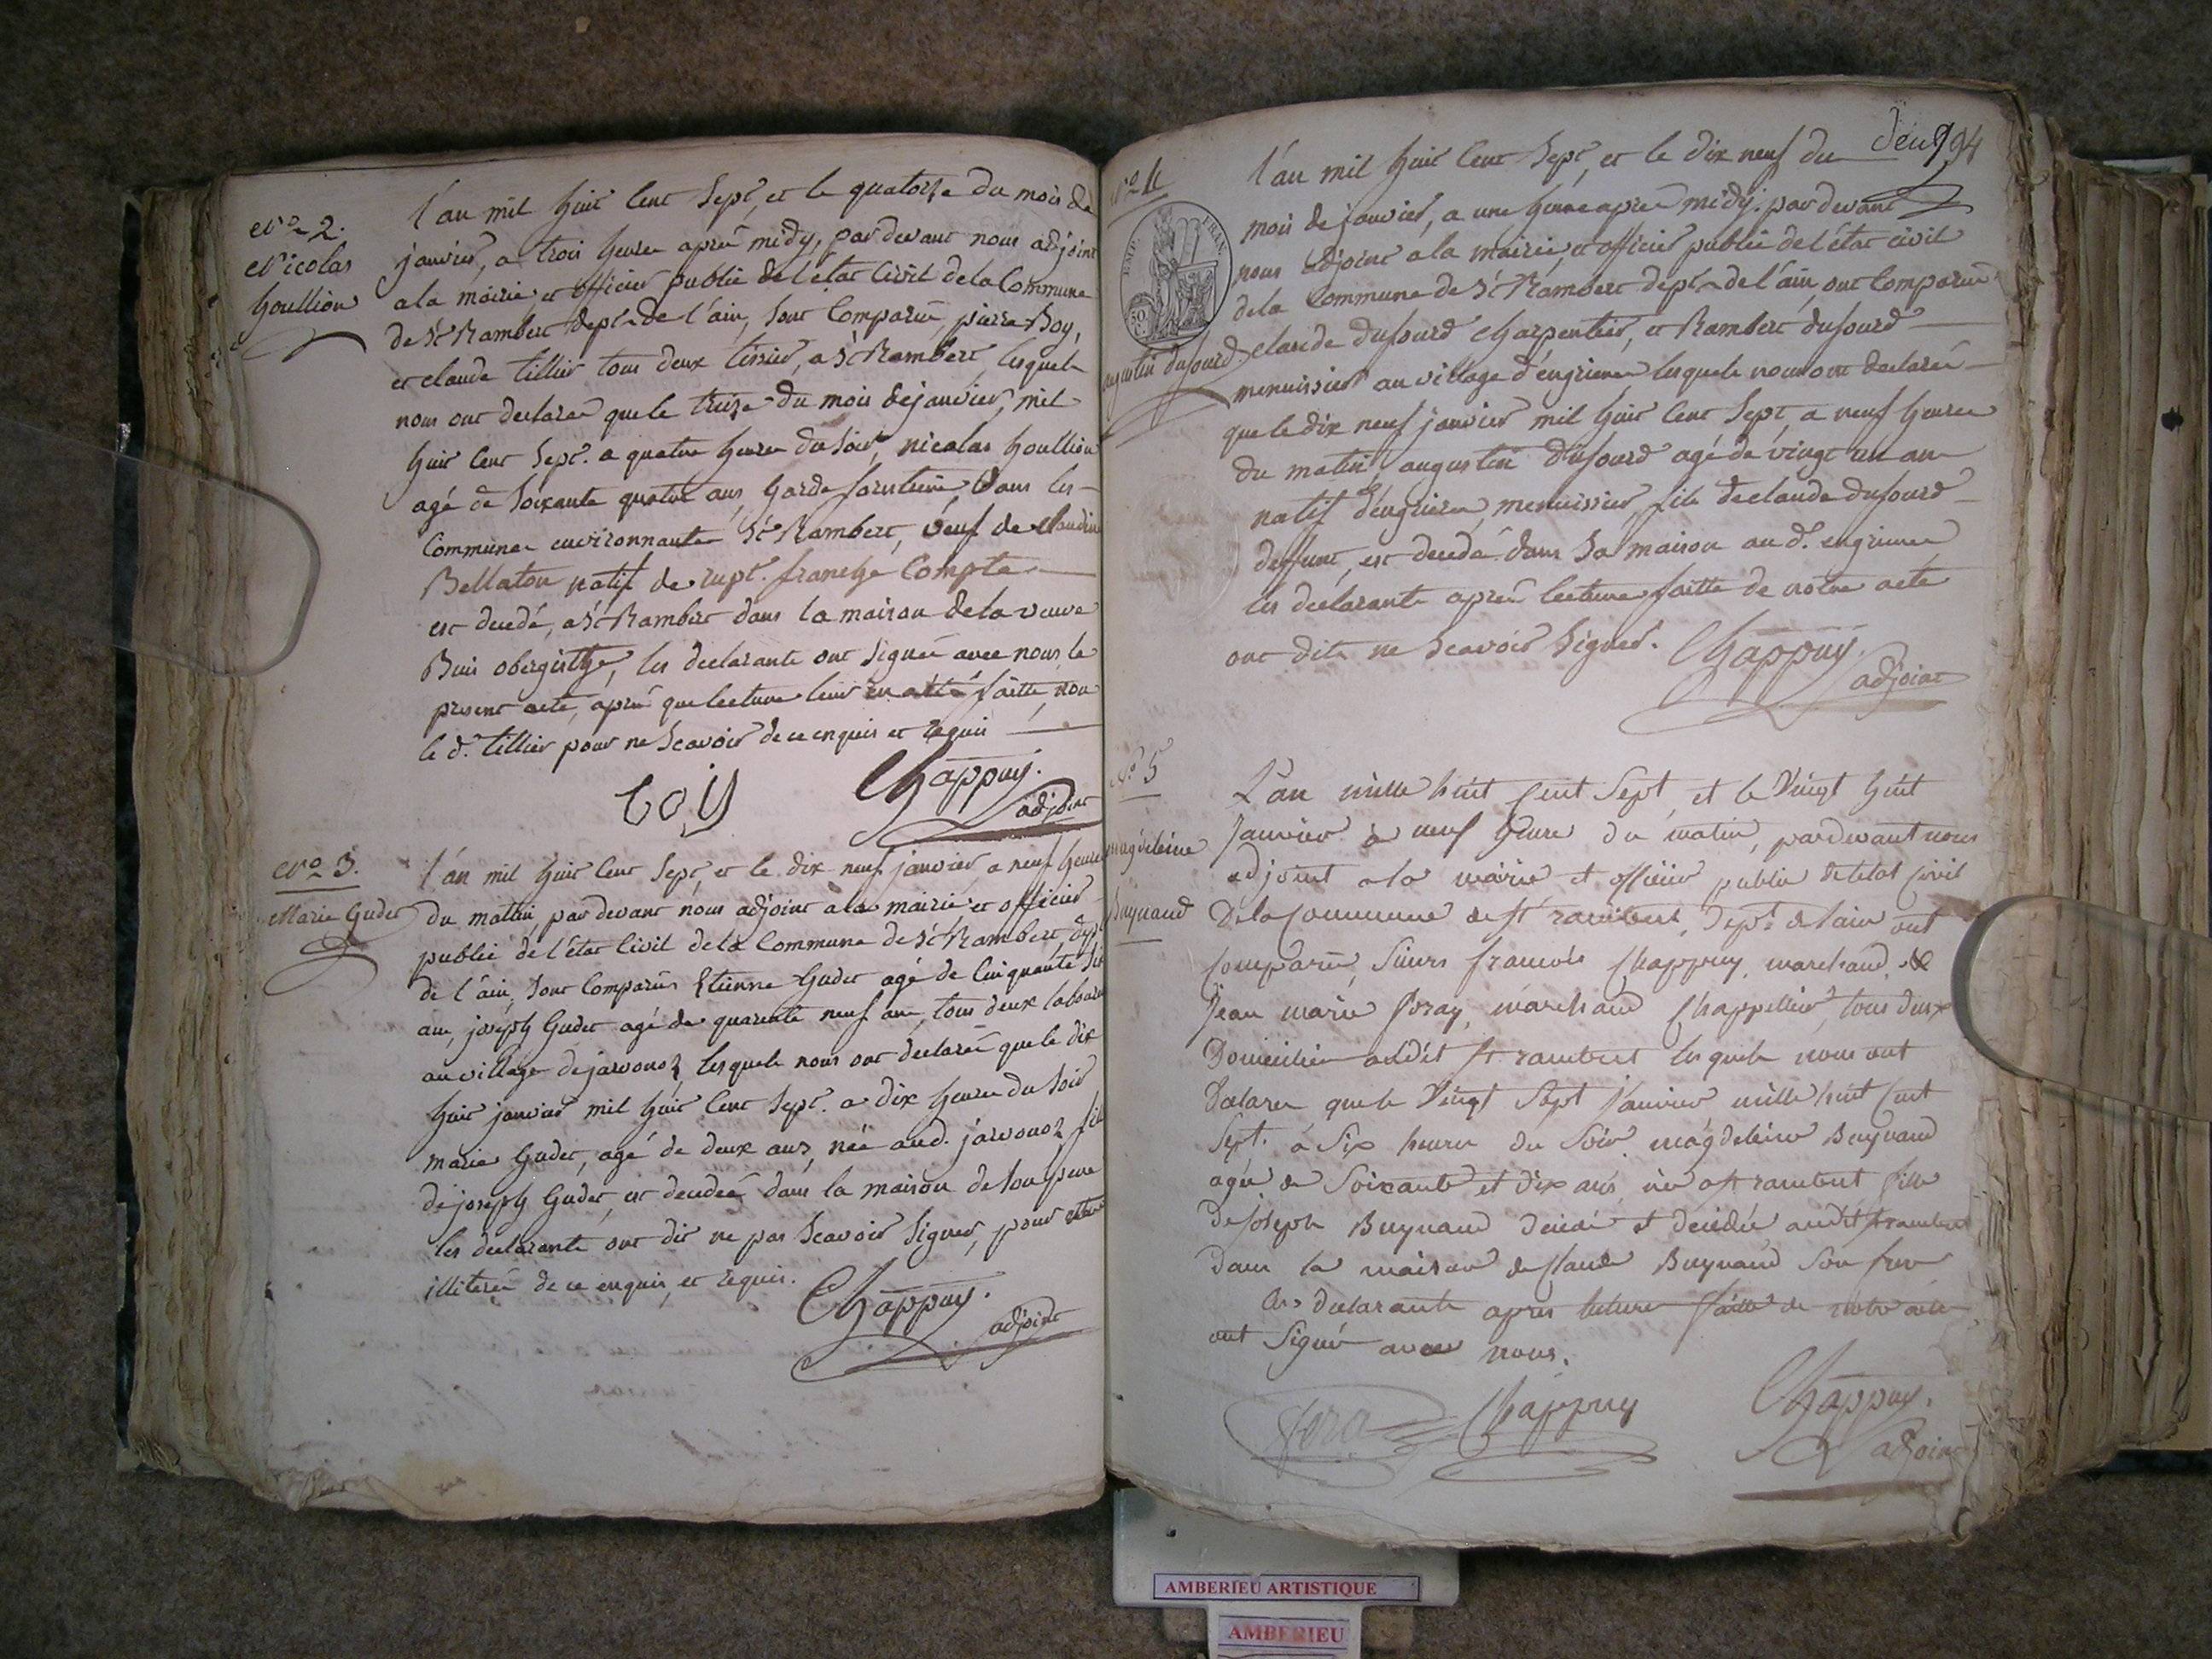 N.o 2.
Nicolas
houllion
l'an mil huit cent sept, et le quatorze du mois de
janvier, a trois heures apres midy, par devant nous adjoint
a la mairie et officier public de l'état civil de la Commune
de St Rambert dept. de l'ain, sont Comparus pierre Boy,
et claude tillier tous deux tissier, a St Rambert, lesquels
nous ont declarés que le treize du mois de janvier, mil
huit cent sept. a quatre heures du soir, nicolas houllion
agé de soixante quatre ans, garde forestiere, dans les
Communes environnantes St Rambert, veuf de claudine
Bellaton natif de rupt. franche Compte
est decedé, a St Rambert dans la maison de la veuve
Buis obergiste, les declarants ont signés avec nous le
present acte, aprés que lecture leur en a été faitte, non
le d. tillier pour ne scavoir de ce enquis et requis
boiy
Chappuy.
adjoint
N.o 3.
Marie Gudet
l'an mil huit cent sept et le dix neuf janvier a neuf heures
du matin, par devant nous adjoint a la mairie et officier
public de l'état civil de la Commune de St Rambert, dept
de l'ain, sont Comparus Etienne Gudet agé de Cinquante
ans, joseph Gudet agé de quarante neuf ans, tous deux
au village de javornoz, lesquels nous ont declarés que le dix
huit janvier mil huit cent sept. a dix heures du soir
marie Gudet, agé de deux ans, née aud. javornoz
de joseph Gudet, est decedée dans la maison de son pere
les declarants ont dit ne pas scavoir signer, pour être
illiterés de ce enquis, et requis.
Chappuy.
adjoint
Deux
94
N.o 4
EMP. FRAN.
50
augustin dufourd
l'an mil huit cent sept, et le dix neuf du
mois de janvier, a une heure aprés midy. par devant
nous adjoint a la mairie, et officier public de l'état civil
de la Commune de St Rambert dept. de l'ain, ont Comparus
claude dufourd charpentier, et Rambert dufourd
menuissier au village d'engrieres lesquels nous ont declarés
que le dix neuf janvier mil huit cent sept, a neuf heures
du matin augustin dufourd agé de vingt un ans
natif d'engrieres, menuissier, fils de claude dufourd
deffunt, est decedé dans sa maison au d. engrieres
les declarants aprés lecture faitte de notre acte
ont dits ne scavoir signer.
Chappuy.
adjoint
N.o 5
magdeleine
Buynand
L'an mille huit cent sept et le vingt huit
Janvier à neuf heure du matin, pardevant nous
adjoint a la mairie et officier public de letat civil
De la Commune de st rambert, Dept. de lain ont
Comparu Sieurs francois Chappuy, marchand, &
Jean marie foray, marchand Chappellier, tous deux
Domicilier audit st. rambert lesquels nous ont
Declarer que le vingt sept janvier mille huit cent
sept. à six heure du soir, magdeleine Buynand
agée de soixante et dix ans, née a st rambert fille
de joseph Buynand decedé et decedée audit st rambert
Dans la maison de Claude Buynand son frere
les declarants apres lecture faitte de notre acte
ont signé avec nous.
fora
Chappuy
Chappuy.
adjoint
AMBERIEU ARTISTIQUE
AMBERIEU